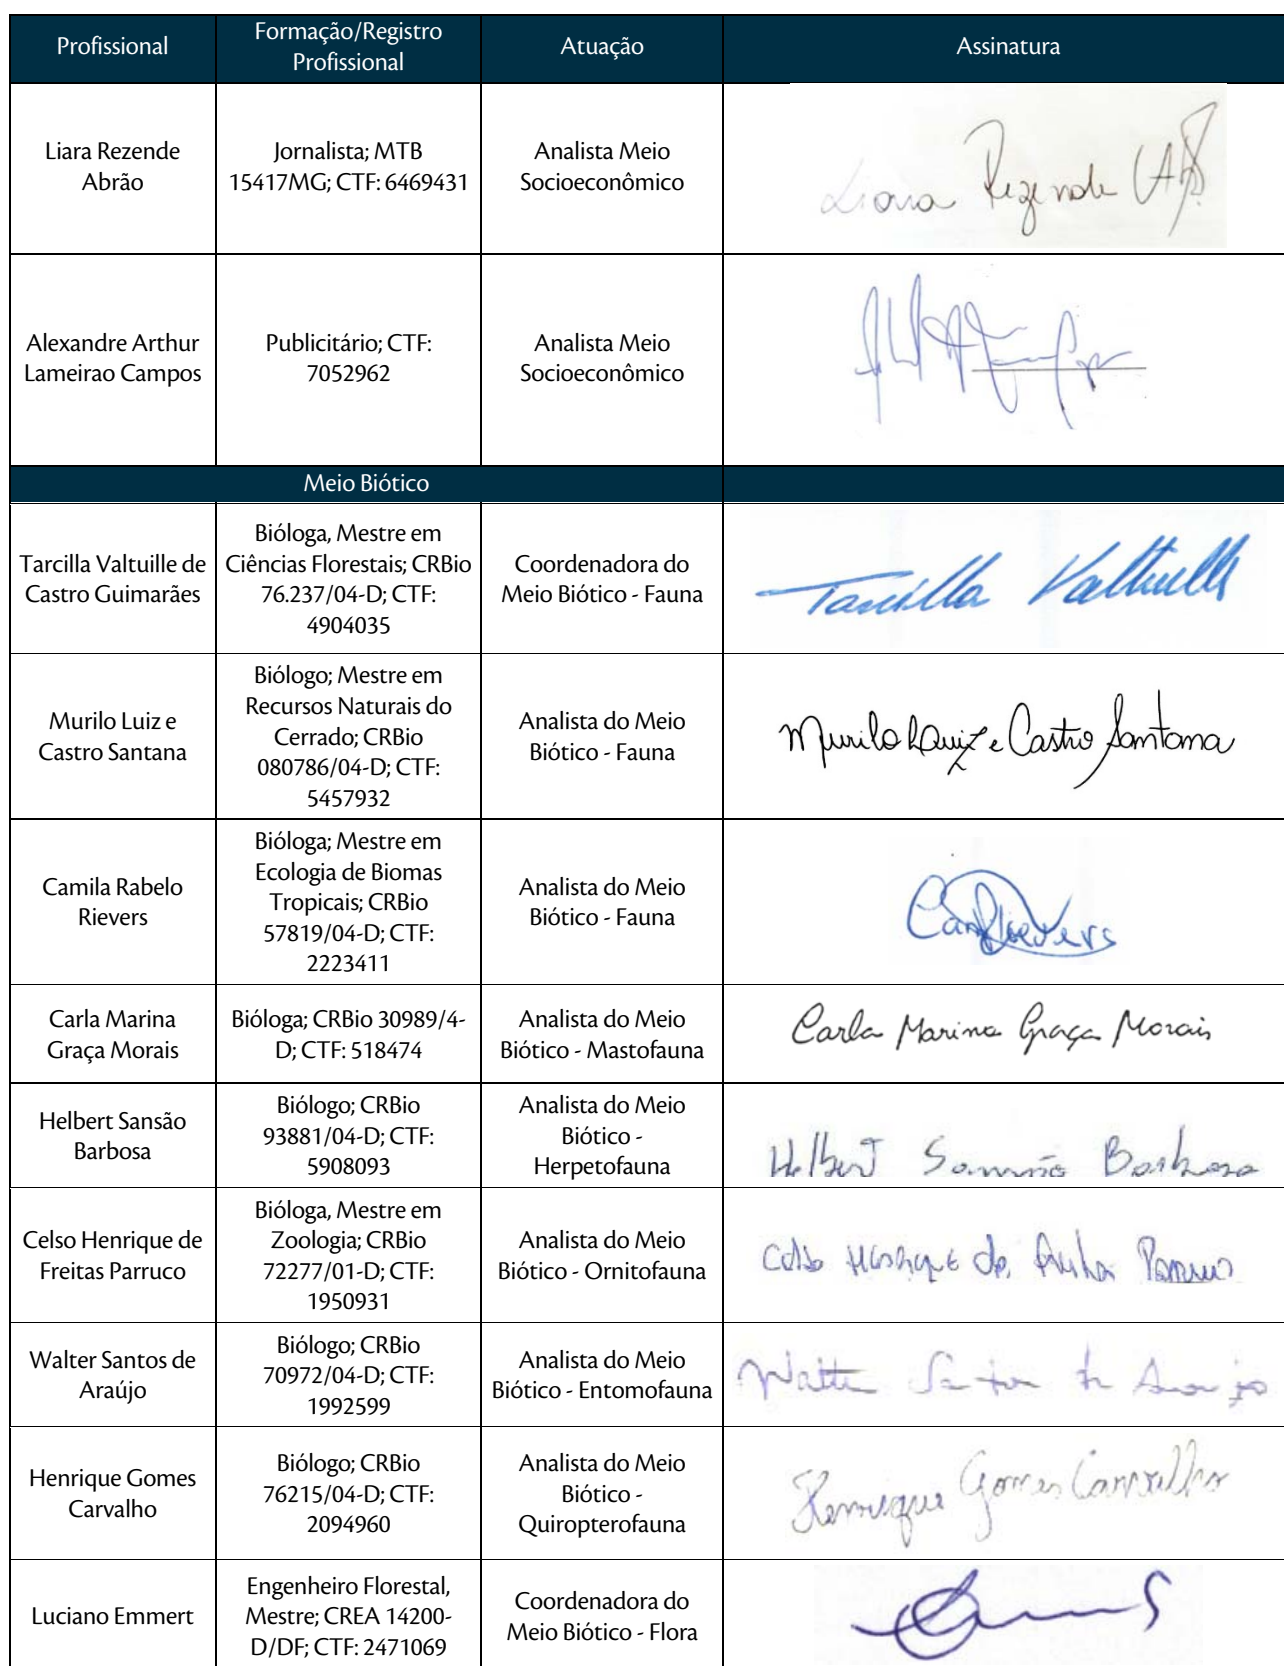 Profissional
Formação/Registro
Profissional
Atuação
Assinatura
Liara Rezende
Abrão
Jornalista; MTB
15417MG; CTF: 6469431
Analista Meio
Socioeconômico
Rezende
Alexandre Arthur
Lameirao Campos
Publicitário; CTF:
7052962
Analista Meio
Socioeconômico
Meio Biótico
Tarcilla Valtuille de
Castro Guimarães
Bióloga, Mestre em
Ciências Florestais; CRBio
76.237/04-D; CTF:
4904035
Coordenadora do
Meio Biótico - Fauna
Tarcilla Valtuille
Murilo Luiz e
Castro Santana
Biólogo; Mestre em
Recursos Naturais do
Cerrado; CRBio
080786/04-D; CTF:
5457932
Analista do Meio
Biótico - Fauna
Murilo Luiz e Castro Santana
Camila Rabelo
Rievers
Bióloga; Mestre em
Ecologia de Biomas
Tropicais; CRBio
57819/04-D; CTF:
2223411
Analista do Meio
Biótico - Fauna
Carla Marina
Graça Morais
Bióloga; CRBio 30989/4-
D; CTF: 518474
Analista do Meio
Biótico - Mastofauna
Carla Marina Graça Morais
Helbert Sansão
Barbosa
Biólogo; CRBio
93881/04-D; CTF:
5908093
Analista do Meio
Biótico -
Herpetofauna
Helbert Sansão Barbosa
Celso Henrique de
Freitas Parruco
Bióloga, Mestre em
Zoologia; CRBio
72277/01-D; CTF:
1950931
Analista do Meio
Biótico - Ornitofauna
Celso Henrique de Freitas Parruco
Walter Santos de
Araújo
Biólogo; CRBio
70972/04-D; CTF:
1992599
Analista do Meio
Biótico - Entomofauna
Walter Santos de Araújo
Henrique Gomes
Carvalho
Biólogo; CRBio
76215/04-D; CTF:
2094960
Analista do Meio
Biótico -
Quiropterofauna
Henrique Gomes Carvalho
Luciano Emmert
Engenheiro Florestal,
Mestre; CREA 14200-
D/DF; CTF: 2471069
Coordenadora do
Meio Biótico - Flora